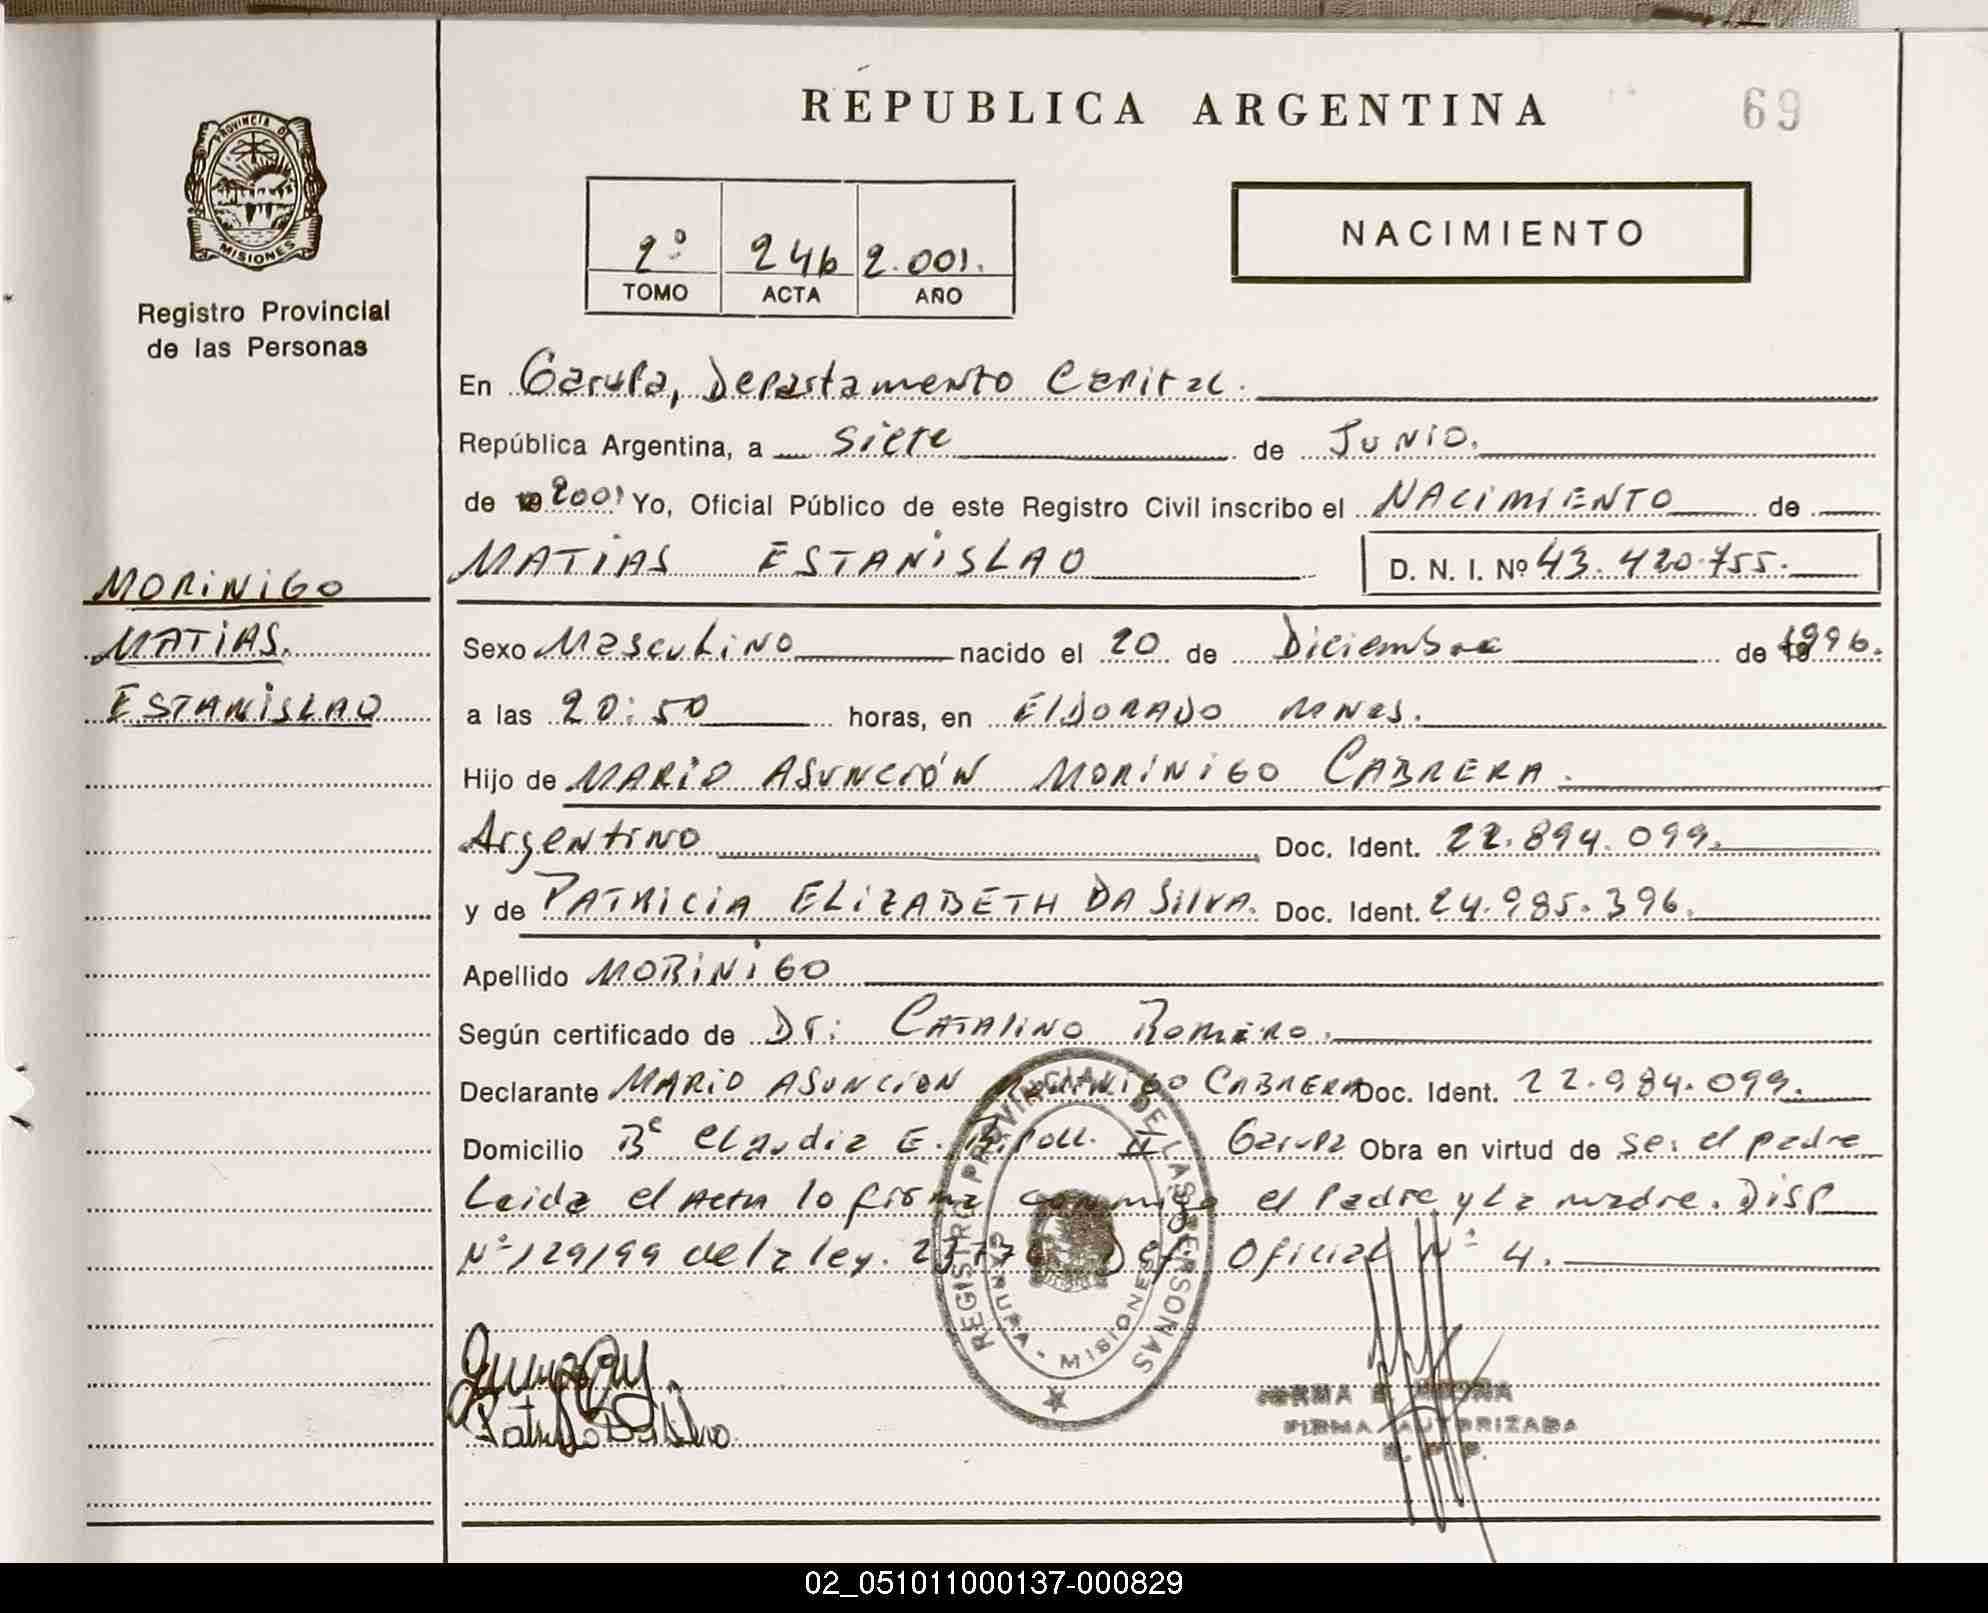 REPUBLICA ARGENTINA
69
PROVINCIA DE
MISIONES
Registro Provincial
de las Personas
2º 246 2.001.
TOMO ACTA AÑO
NACIMIENTO
En Garupa, Departamento Capital.
República Argentina, a siete de Junio.
de 2001 Yo, Oficial Público de este Registro Civil inscribo el NACIMIENTO de
MATIAS ESTANISLAO D. N. I. Nº 43.420.755.
MORINIGO
MATIAS.
ESTANISLAO
Sexo Masculino nacido el 20 de Diciembre de 1996.
a las 20:50 horas, en ElDORADO Mnes.
Hijo de MARIO ASUNCIÓN MORINIGO CABRERA.
Argentino Doc. Ident. 22.894.099.
y de PATRICIA ELIZABETH DA SILVA. Doc. Ident. 24.985.396.
Apellido MORINIGO
Según certificado de Dr: CATALINO ROMERO.
Declarante MARIO ASUNCION MORINIGO CABRERA Doc. Ident. 22.984.099.
Domicilio Bº Claudia E. Ripoll. II Garupa Obra en virtud de ser el padre
Leida el Acta lo firma conmigo el Padre y La madre. Disp
Nº 129/99 de la ley. Oficial Nº 4.
REGISTRO PROVINCIAL DE LAS PERSONAS
MISIONES
FIRMA AUTORIZADA
R. P. P.
02_051011000137-000829